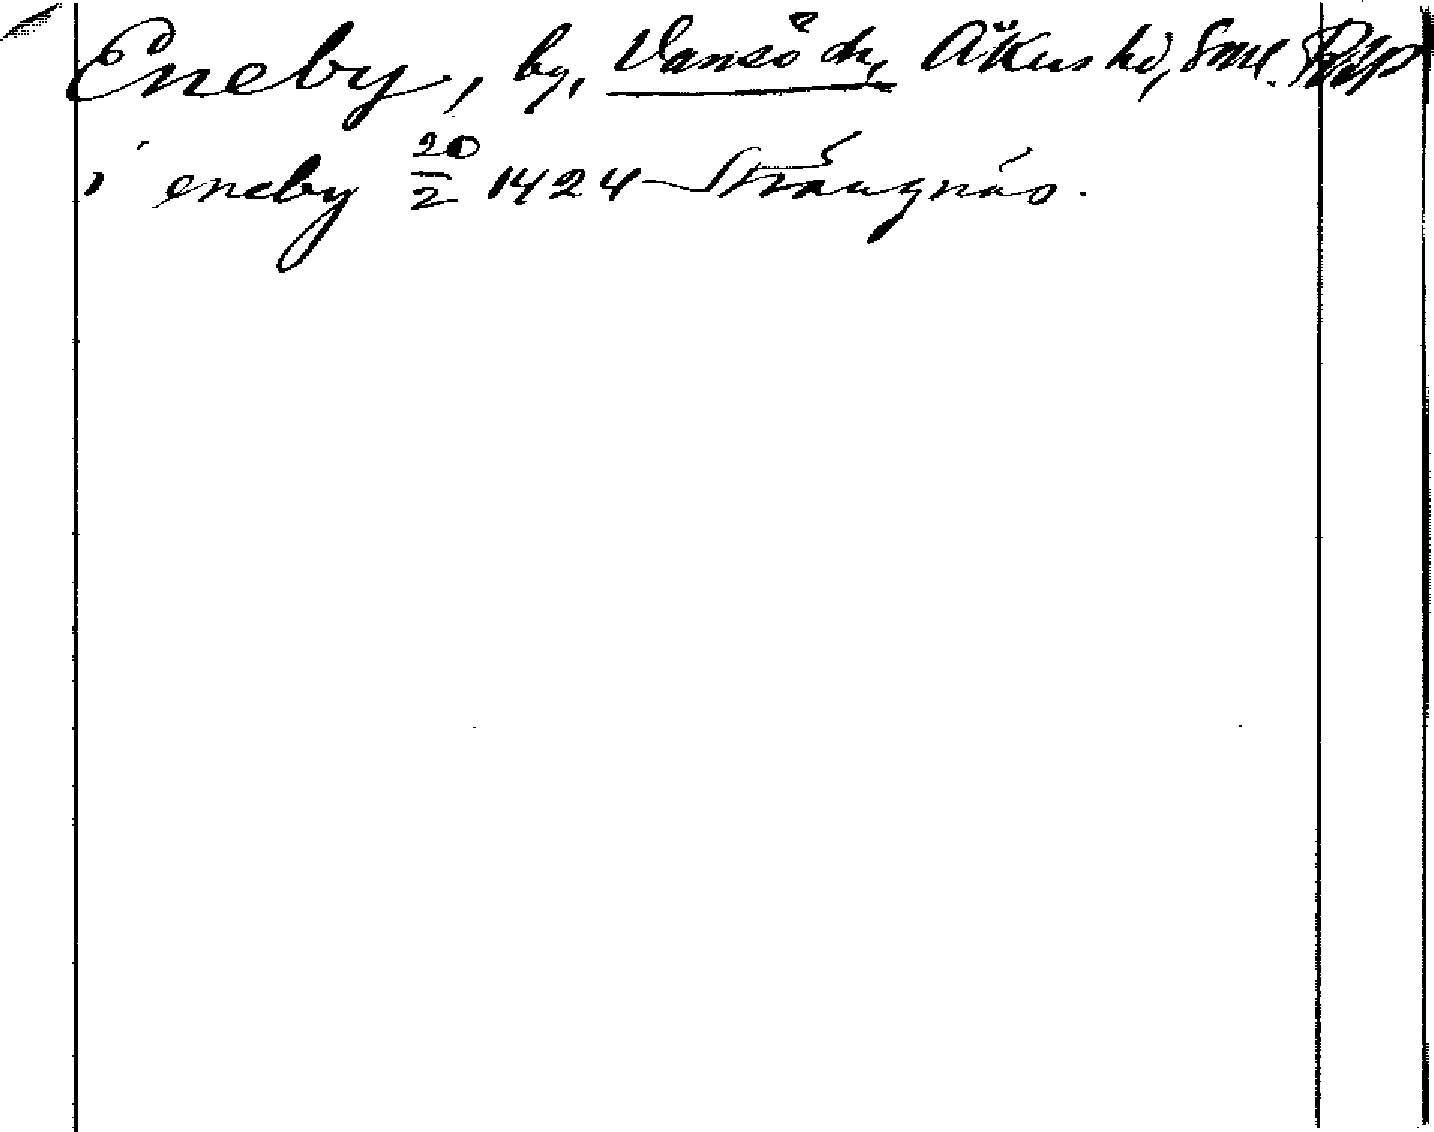 Eneby, by, Vansö sn, Åkers hd, Srml.
i eneby 20/2 1424 Strängnäs.